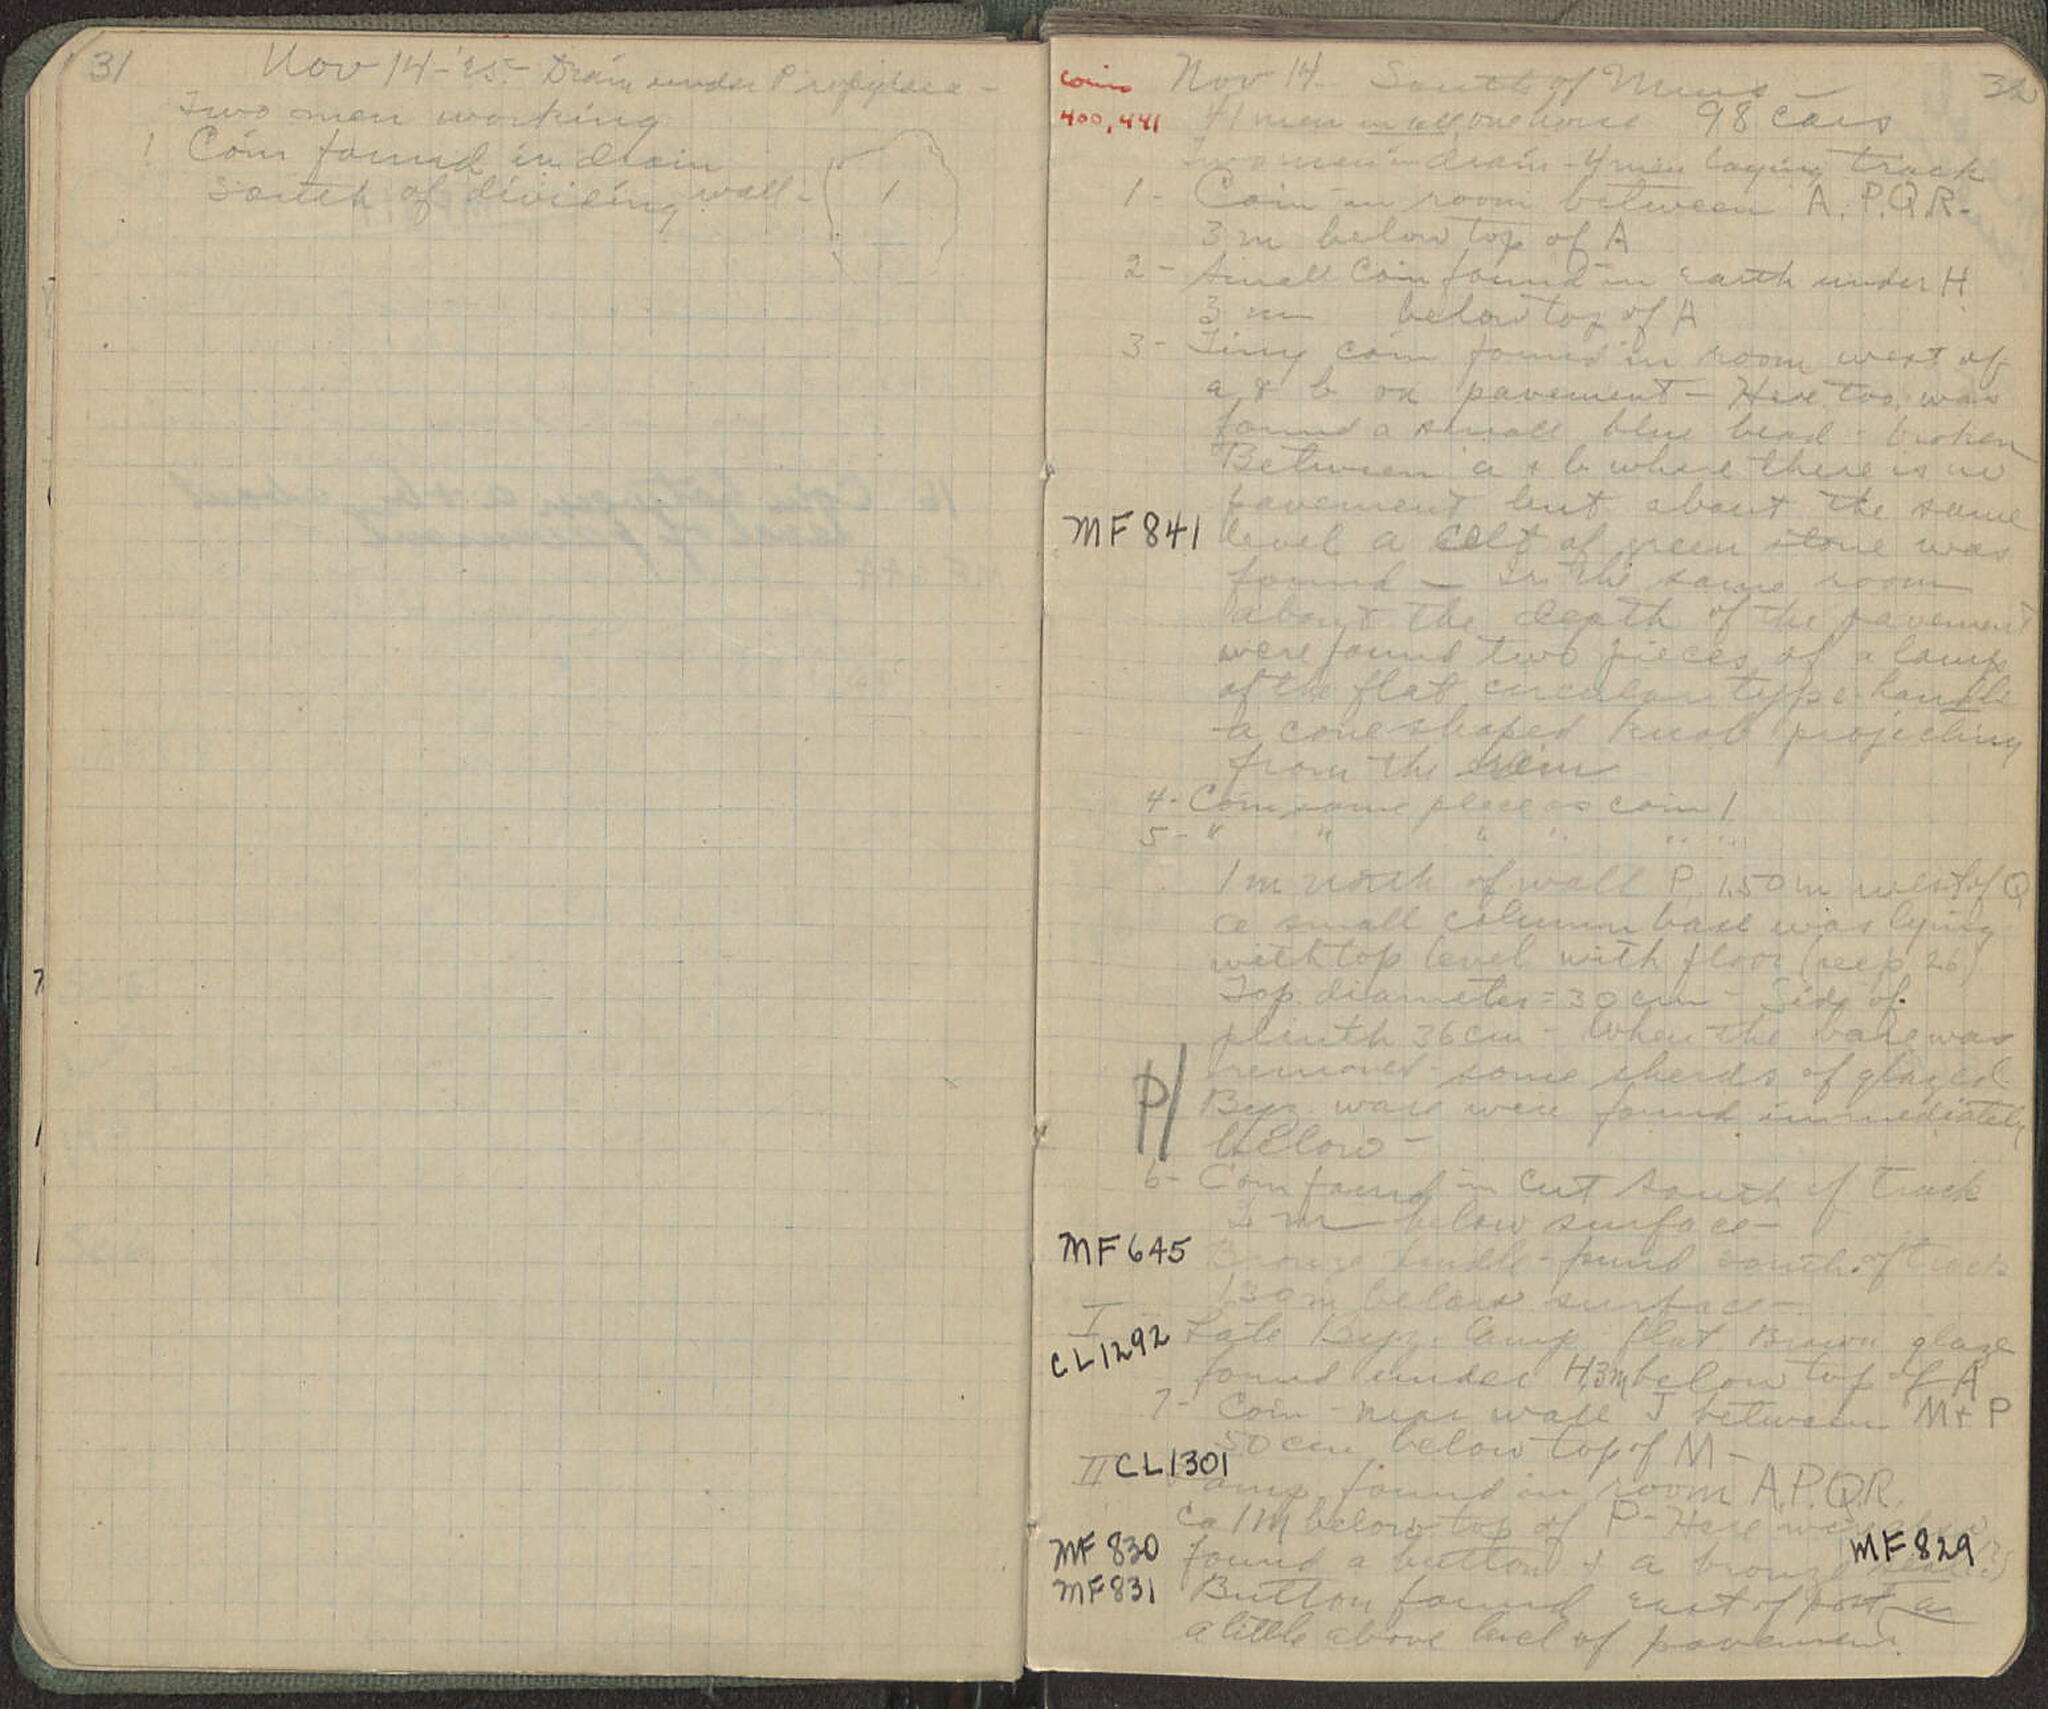 31
Nov 14 - '25 - Drain under Propylaea -
Two men working
1 Coin found in drain
south of dividing wall - 1
32
coins
400, 441
Nov 14 - South of Mus -
41 men in all, one horse 98 cars
Two men in drain - 4 men laying track
1 - Coin in room between A. P. Q. R -
3 m below top of A
2 - Small coin found in earth under H
3 m below top of A
3 - Tiny coin found in room west of
a & b on pavement - Here too was
found a small blue bead - broken
Between a & b where there is no
pavement but about the same
MF 841 level a celt of green stone was
found - In the same room
about the depth of the pavement
were found two pieces of a lamp
of the flat circular type - handle
- a cone shaped knob projecting
from the rim
4 - Coin same place as coin 1
5 - " " " " " "
1 m north of wall P, 1.50 m west of Q
a small column base was lying
with top level with floor (see p 26)
Top diameter = 30 cm - Side of
plinth 36 cm - When the base was
removed - some sherds of glazed
P/ Byz. ware were found immediately
below -
6 - Coin found in cut south of track
2 m below surface -
MF 645 Bronze handle - found south of track
1.30 m below surface -
I CL 1292 Late Byz. lamp flat Brown glaze
found under H, 3 m below top of A
7 - Coin - near wall J between M & P
50 cm below top of M -
II CL 1301 Lamp found in room A. P. Q. R.
Ca 1 m below top of P - Here were also
MF 830 found a button & a bronze MF 829
MF 831 Button found east of post a
a little above level of pavement